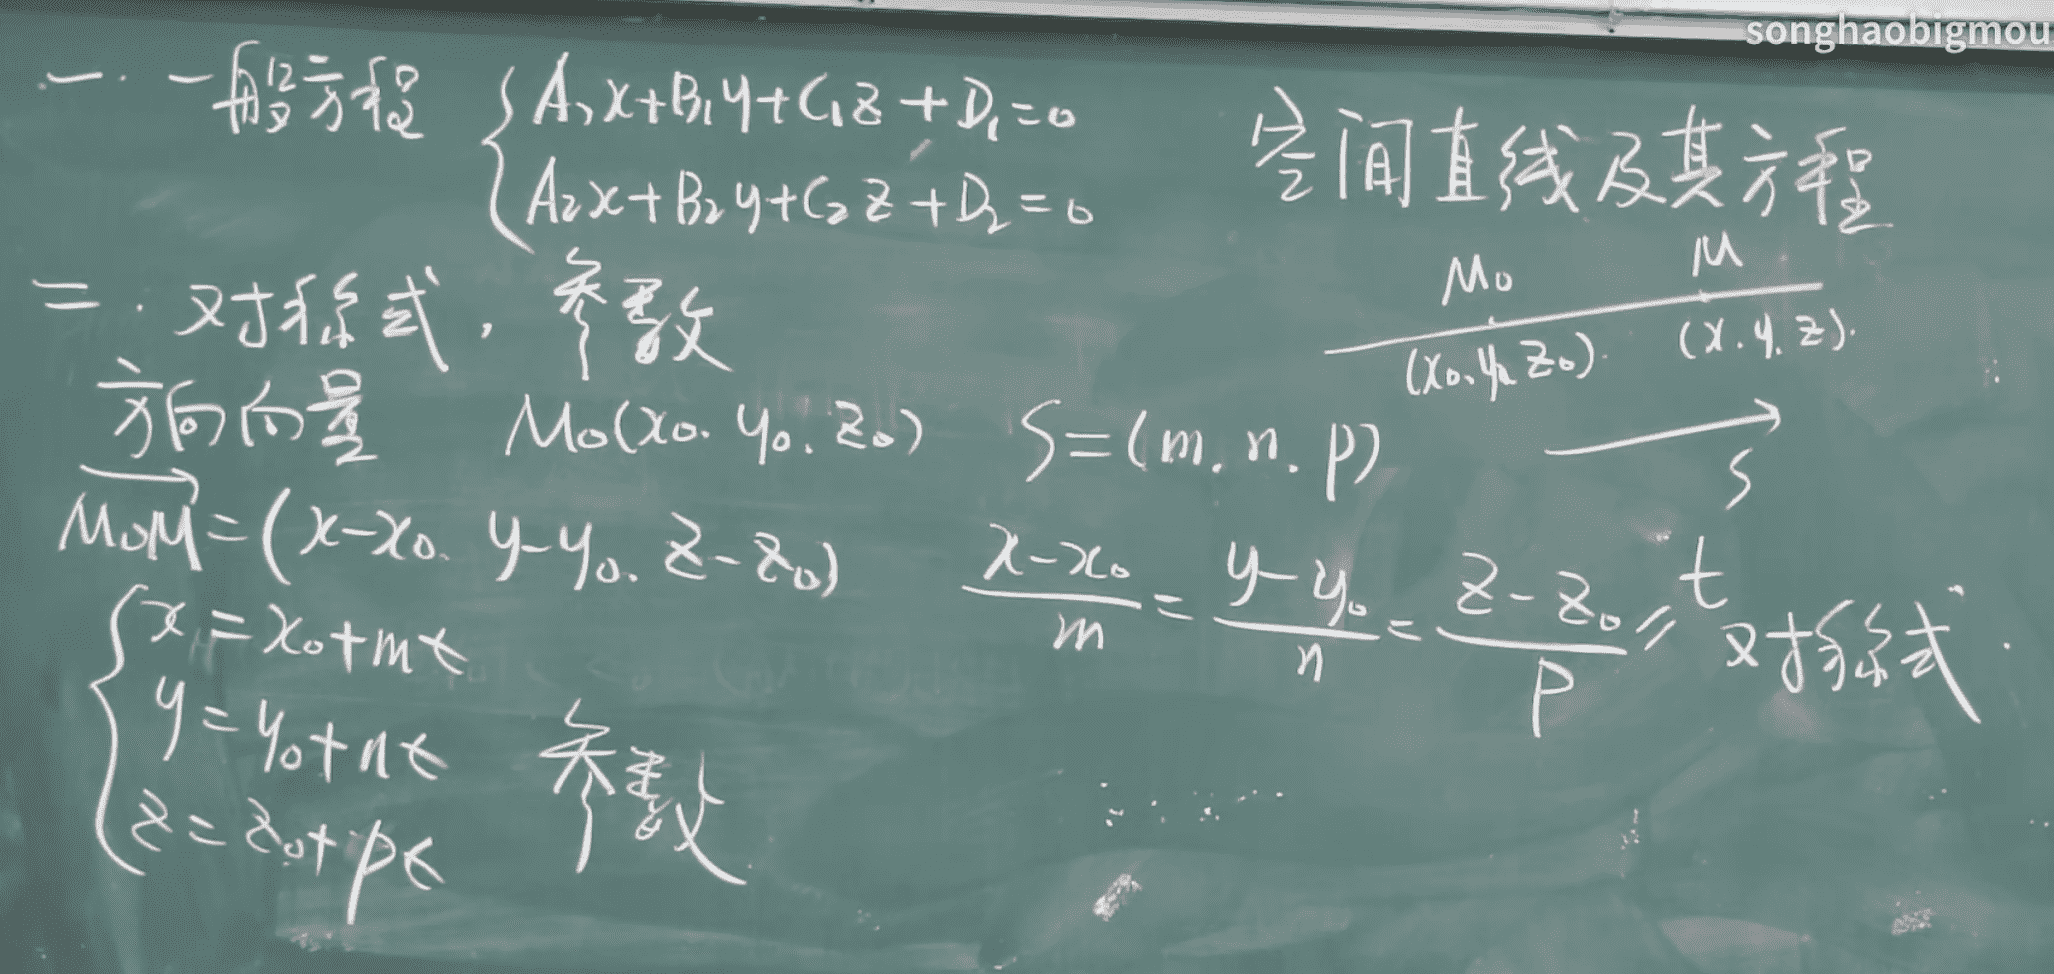 songhaobigmou
空间直线及其方程
一. 一般方程 { A₁x+B₁y+C₁z+D₁=0
A₂x+B₂y+C₂z+D₂=0
二. 对称式, 参数
M₀ M
(x₀.y₀.z₀). (x.y.z).
S
方向向量 M₀(x₀.y₀.z₀) S=(m.n.p)
\overrightarrow{M₀M}=(x-x₀. y-y₀. z-z₀)
\frac{x-x₀}{m}=\frac{y-y₀}{n}=\frac{z-z₀}{p}=t 对称式.
{ x=x₀+mt
y=y₀+nt 参数
z=z₀+pt